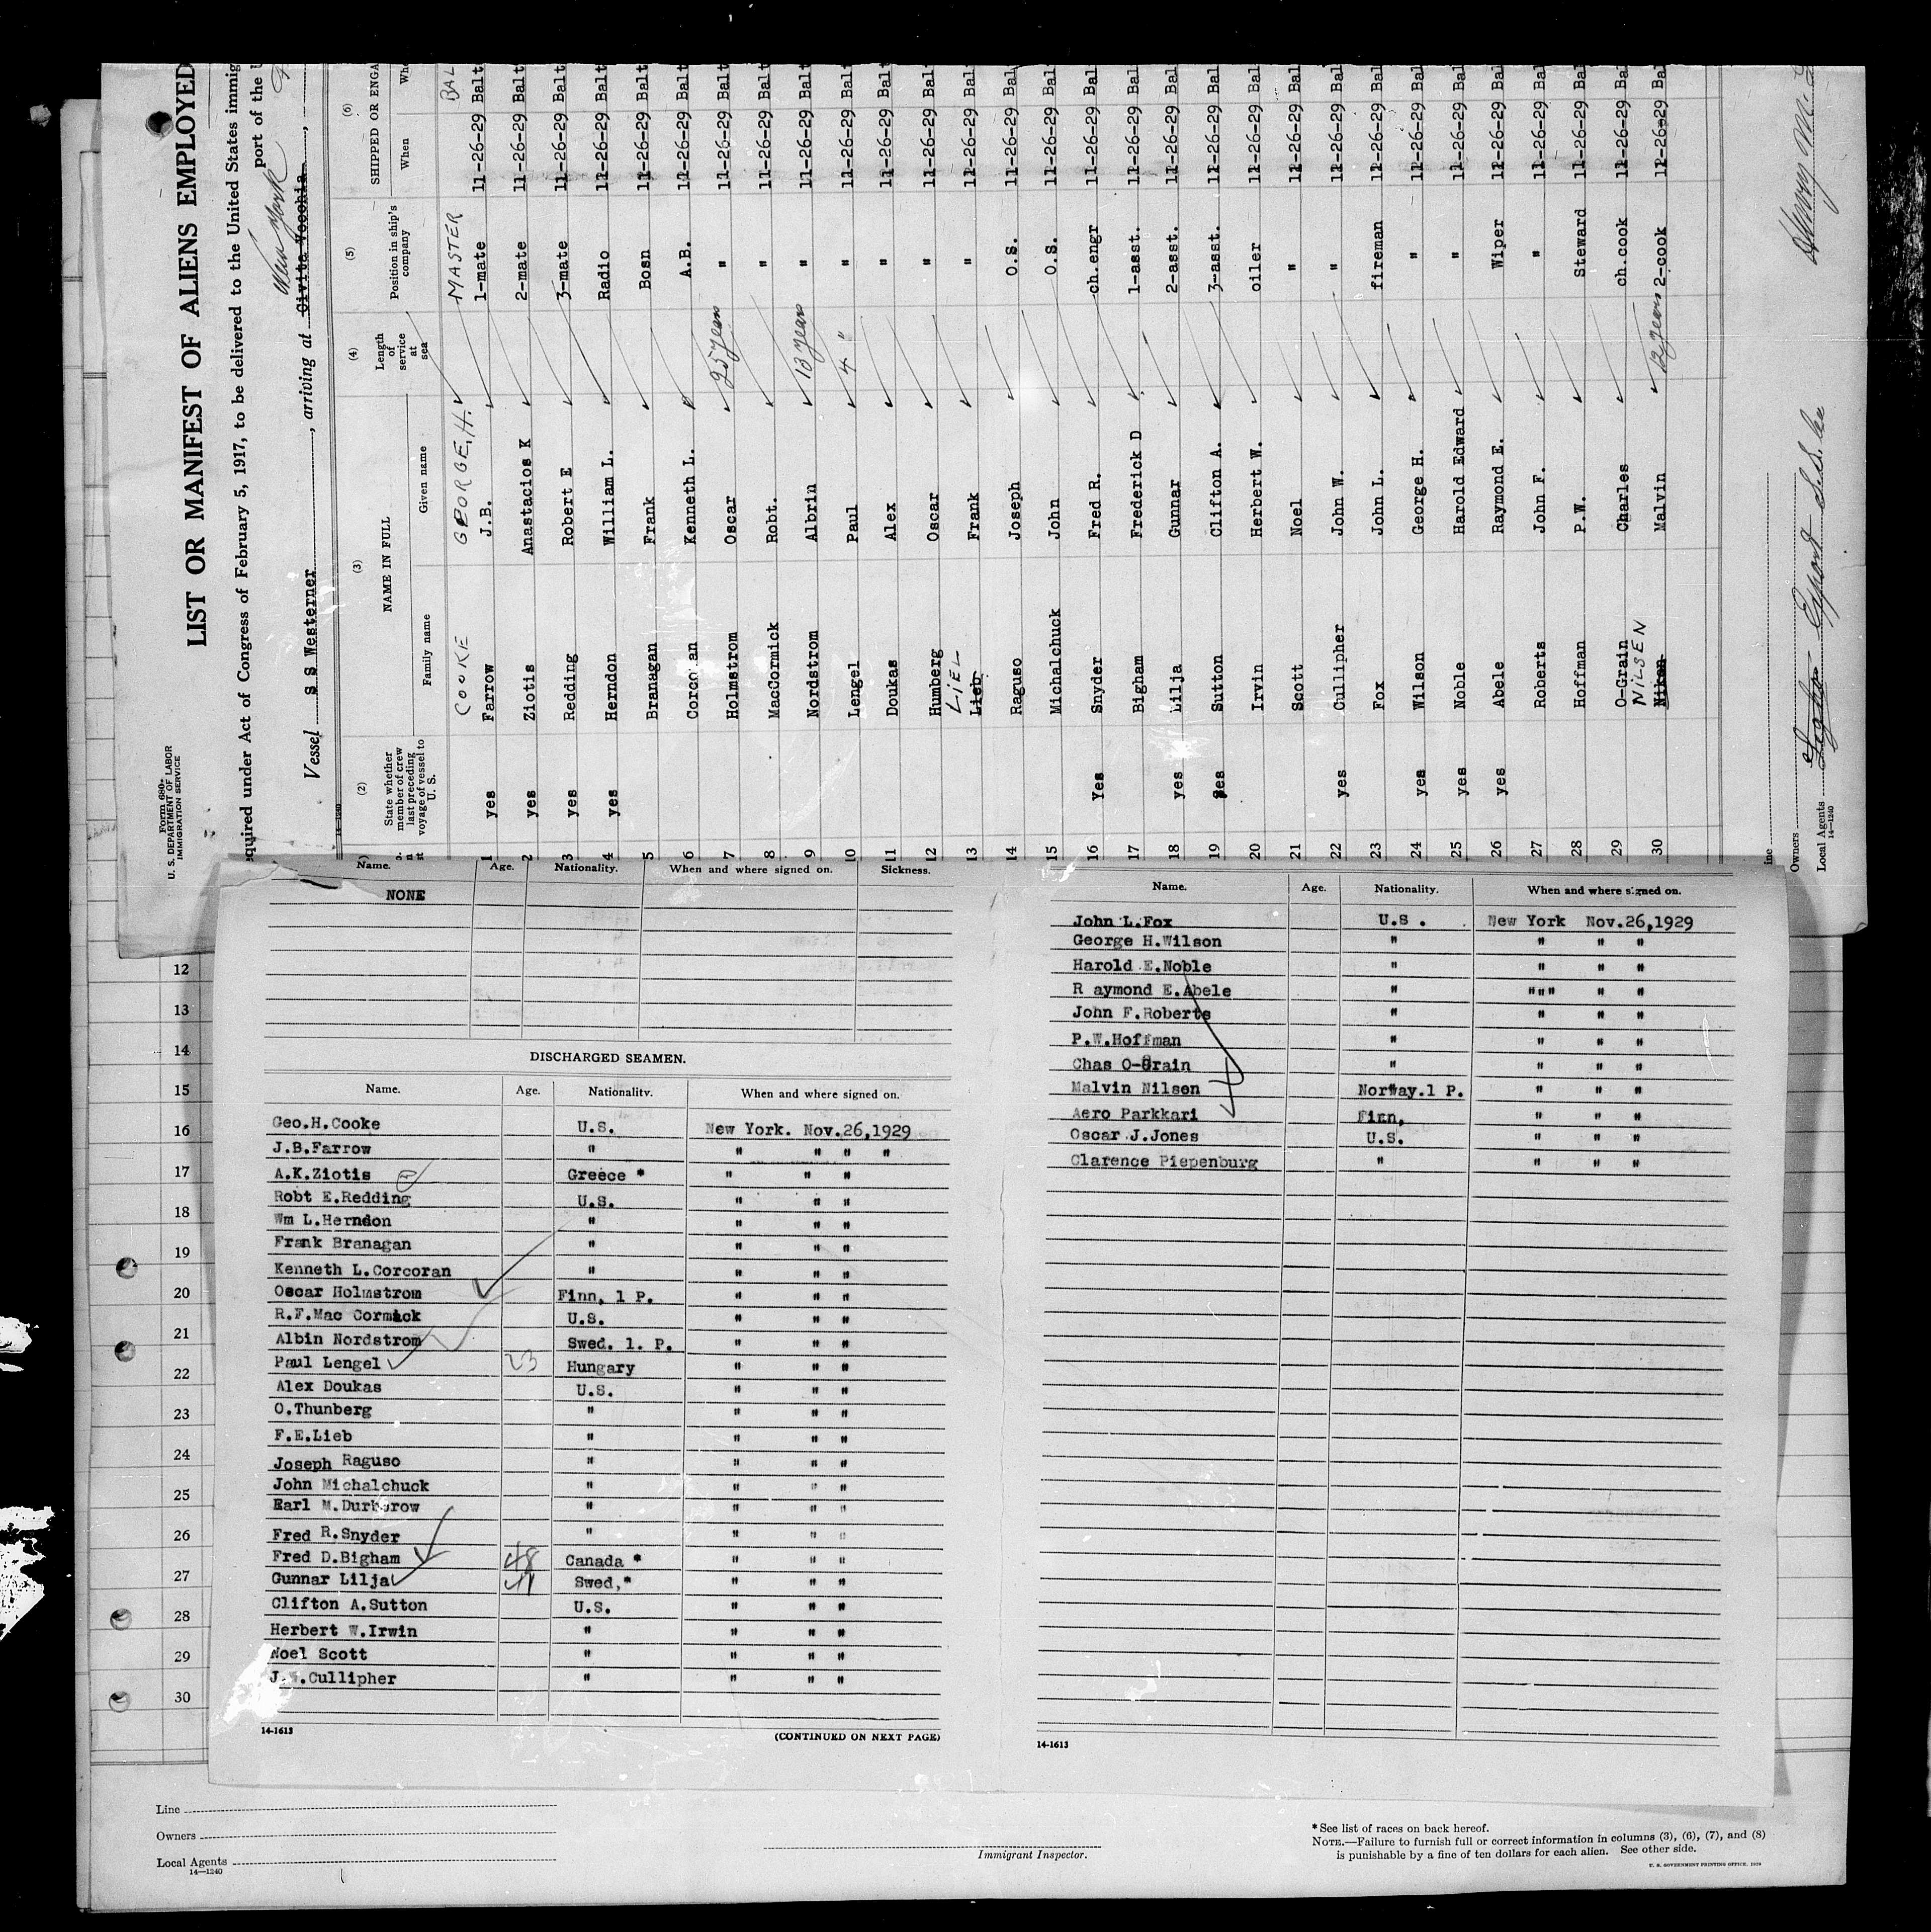 Form 680
U. S. DEPARTMENT OF LABOR
IMMIGRATION SERVICE
LIST OR MANIFEST OF ALIENS EMPLOYED
equired under Act of Congress of February 5, 1917, to be delivered to the United States immig
port of the
New York
Vessel S S Westerner, arriving at Civita Vecchia
14-1240
(2) (3) (4) (5) (6)
State whether member of crew last preceding voyage of vessel to U. S.
NAME IN FULL
Family name Given name
Length of service at sea
Position in ship's company
SHIPPED OR ENGA
When Whe
COOKE GEORGE, H. MASTER BAL
1 yes Farrow J.B. 1-mate 11-26-29 Balt
2 yes Ziotis Anastacios K 2-mate 11-26-29 Balt
3 yes Redding Robert E 3-mate 11-26-29 Balt
4 yes Herndon William L. Radio 11-26-29 Balt
5 Branagan Frank Bosn 11-26-29 Balt
6 Corcoran Kenneth L. A.B. 11-26-29 Balt
7 Holmstrom Oscar 25 years " 11-26-29 Balt
8 MacCormick Robt. " 11-26-29 Balt
9 Nordstrom Albrin 13 years " 11-26-29 Balt
10 Lengel Paul 4 " " 11-26-29 Balt
11 Doukas Alex " 11-26-29 Balt
12 Humberg Oscar " 11-26-29 Bal
LIEL
13 Lieb Frank " 11-26-29 Bal
14 Raguso Joseph O.S. 11-26-29 Bal
15 Michalchuck John O.S. 11-26-29 Bal
16 Yes Snyder Fred R. ch.engr 11-26-29 Bal
17 Bigham Frederick D 1-asst. 11-26-29 Bal
18 yes Lilja Gunnar 2-asst. 11-26-29 Bal
19 yes Sutton Clifton A. 3-asst. 11-26-29 Bal
20 Irvin Herbert W. oiler 11-26-29 Bal
21 Scott Noel " 11-26-29 Bal
22 yes Cullipher John W. " 11-26-29 Bal
23 Fox John L. fireman 11-26-29 Bal
24 yes Wilson George H. " 11-26-29 Bal
25 yes Noble Harold Edward " 11-26-29 Bal
26 yes Abele Raymond E. Wiper 11-26-29 Bal
27 Roberts John F. " 11-26-29 Bal
28 Hoffman P.W. Steward 11-26-29 Bal
29 O-Grain Charles ch.cook 11-26-29 Bal
NILSEN
30 Malvin 12 years 2-cook 11-26-29 Bal
ine
Owners
Local Agents Export S.S. Co
14-1240
Henry M.
Name. Age. Nationality. When and where signed on. Sickness.
NONE
DISCHARGED SEAMEN.
Name. Age. Nationality. When and where signed on.
Geo.H.Cooke U.S. New York. Nov.26,1929
J.B.Farrow " " " " "
A.K.Ziotis Greece * " " "
Robt E.Redding U.S. " " "
Wm L.Herndon " " " "
Frank Branagan " " " "
Kenneth L.Corcoran " " " "
Oscar Holmstrom Finn, 1 P. " " "
R.F.Mac Cormick U.S. " " "
Albin Nordstrom Swed. 1. P. " " "
Paul Lengel 23 Hungary " " "
Alex Doukas U.S. " " "
O.Thunberg " " " "
F.E.Lieb " " " "
Joseph Raguso " " " "
John Michalchuck " " " "
Earl M.Durborow " " " "
Fred R.Snyder " " " "
Fred D.Bigham 48 Canada * " " "
Gunnar Lilja 41 Swed,* " " "
Clifton A.Sutton U.S. " " "
Herbert W.Irwin " " " "
Noel Scott " " " "
J.W.Cullipher " " " "
14-1613
(CONTINUED ON NEXT PAGE)
Name. Age. Nationality. When and where signed on.
John L.Fox U.S . New York Nov.26,1929
George H.Wilson " " " "
Harold E.Noble " " " "
R aymond E.Abele " """ " "
John F.Roberts " " " "
P.W.Hoffman " " " "
Chas O-Grain " " " "
Malvin Nilsen Norway.1 P. " " "
Aero Parkkari Finn, " " "
Oscar J.Jones U.S. " " "
Clarence Piepenburg " " " "
14-1613
12
13
14
15
16
17
18
19
20
21
22
23
24
25
26
27
28
29
30
Line
Owners
Local Agents
14-1240
Immigrant Inspector.
*See list of races on back hereof.
NOTE.—Failure to furnish full or correct information in columns (3), (6), (7), and (8)
is punishable by a fine of ten dollars for each alien. See other side.
U. S. GOVERNMENT PRINTING OFFICE. 1929